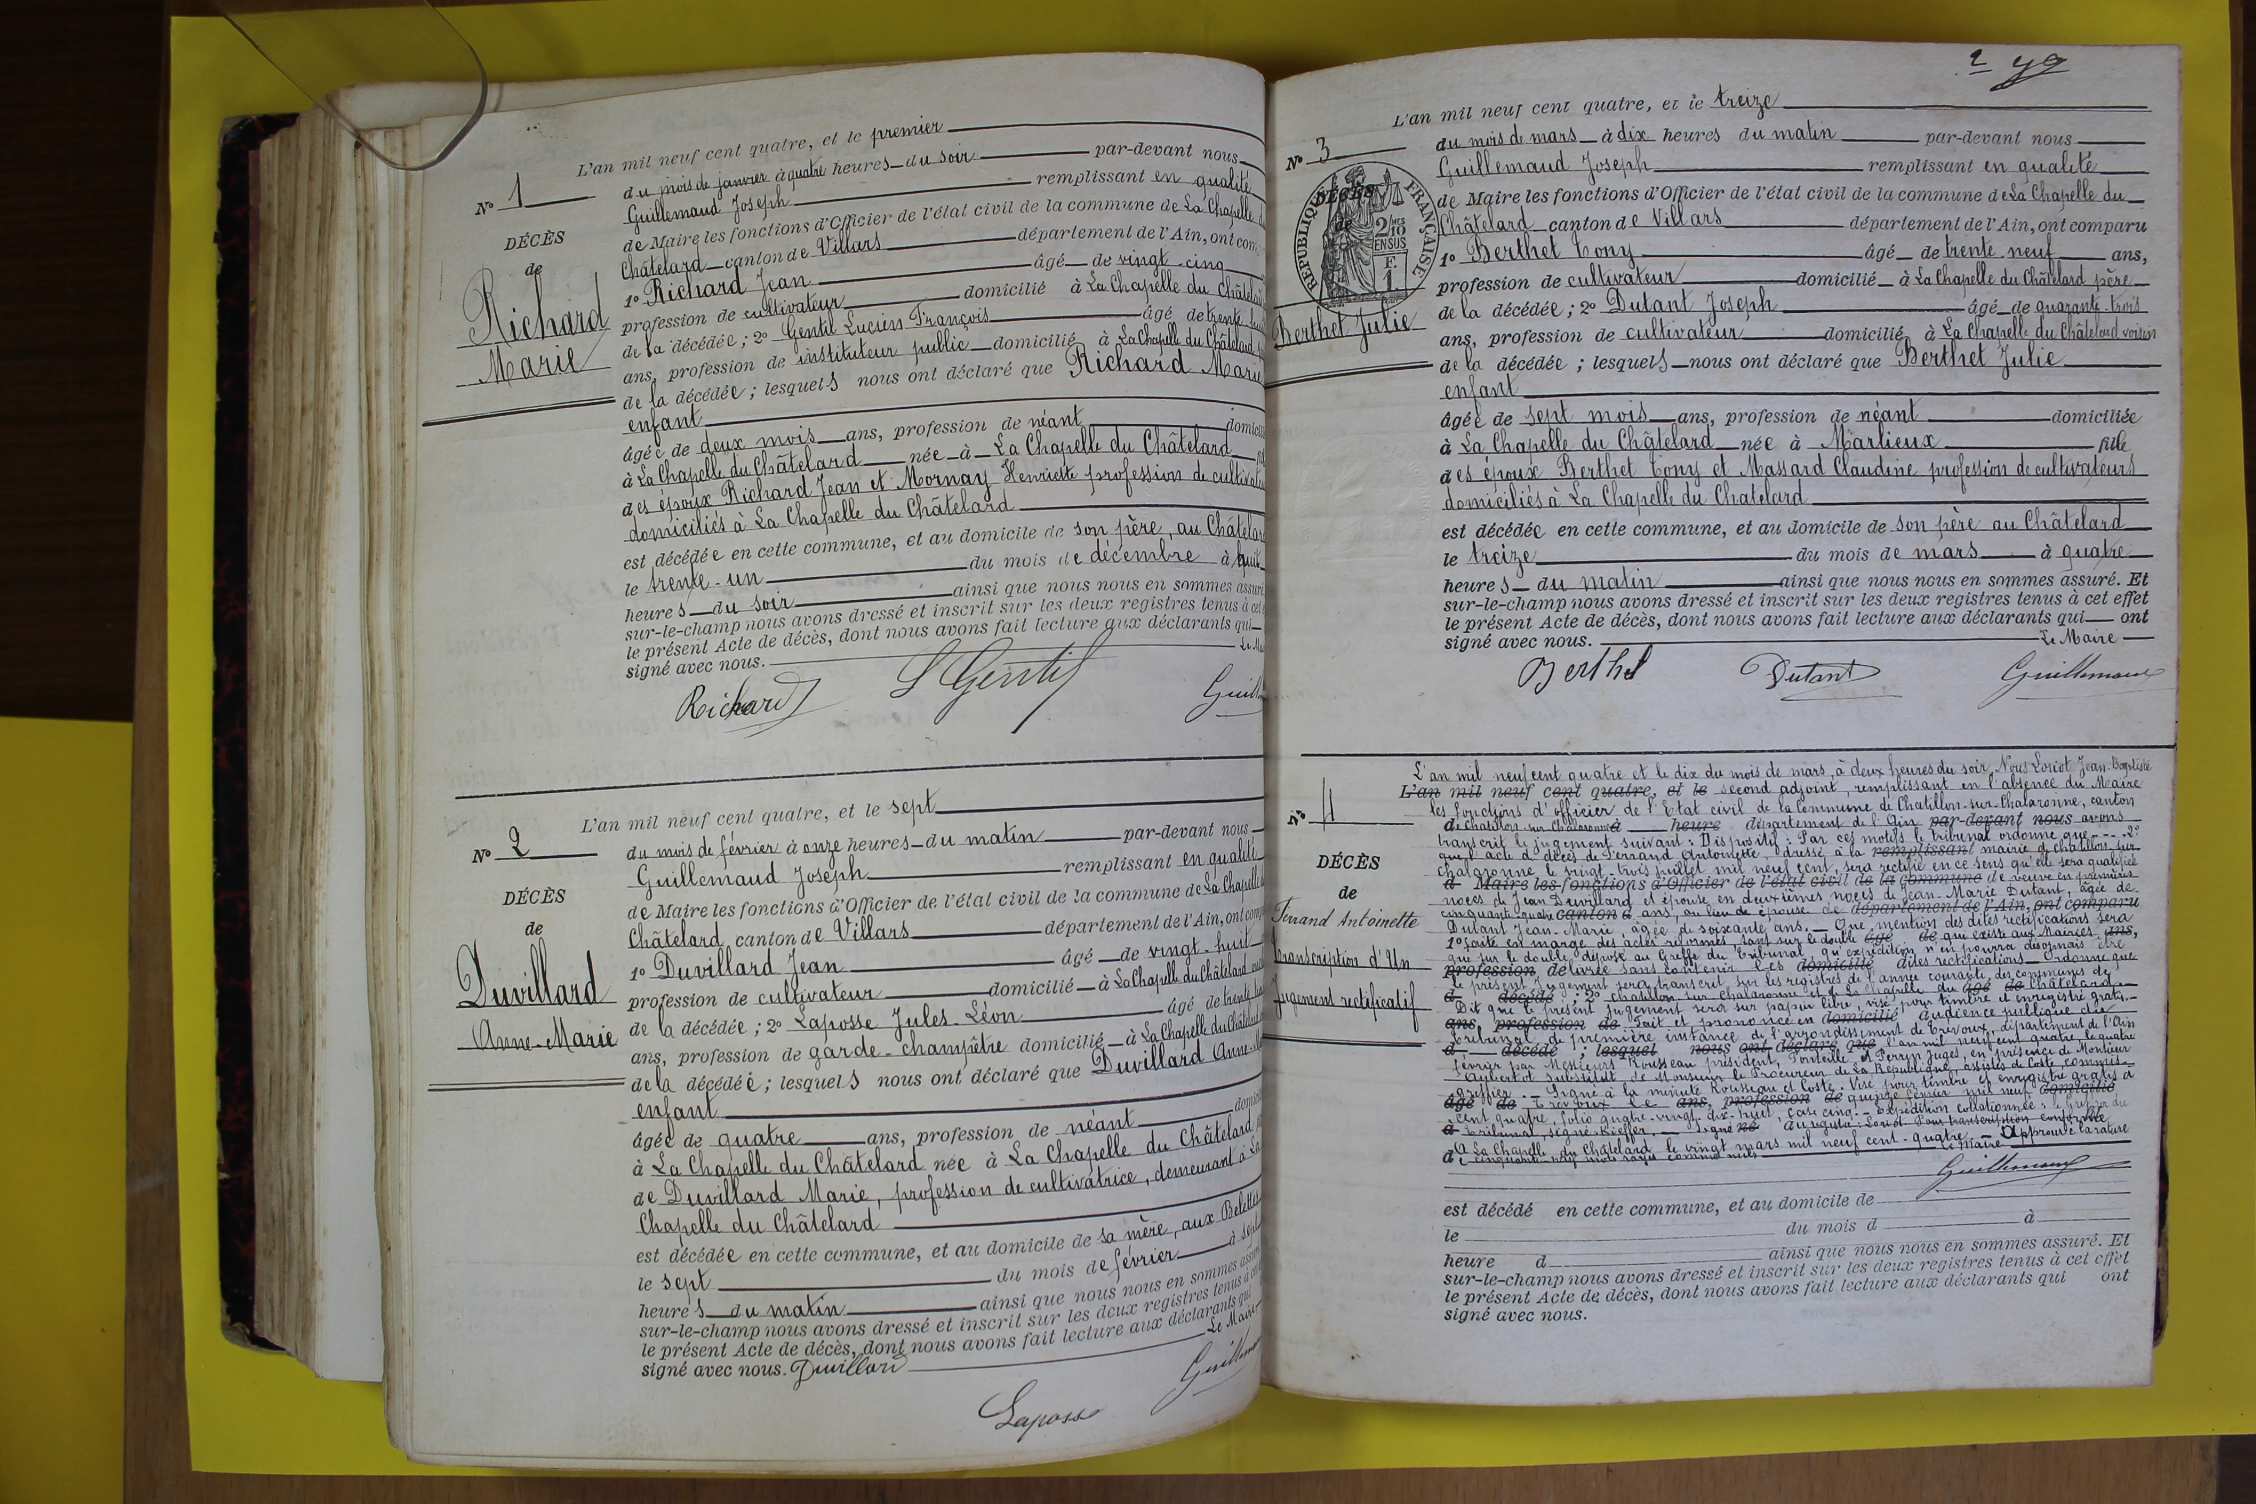 L'an mil neuf cent quatre, et le premier
N° 1
du mois de janvier à quatre heures du soir par-devant nous
Guillemaud Joseph remplissant en qualité
DÉCÈS
de Maire les fonctions d'Officier de l'état civil de la commune de La Chapelle
de
Châtelard canton de Villars département de l'Ain, ont
Richard
Marie
1° Richard Jean âgé de vingt-cinq
profession de cultivateur domicilié à La Chapelle du Châtelard
de la décédée ; 2° Gentil Lucien François âgé de trente
ans, profession de instituteur public domicilié à La Chapelle du Châtelard
de la décédée ; lesquels nous ont déclaré que Richard Marie
enfant
âgée de deux mois ans, profession de néant
à La Chapelle du Châtelard née à La Chapelle du Châtelard
des époux Richard Jean et Mornay Henriette profession de
domiciliés à La Chapelle du Châtelard
est décédée en cette commune, et au domicile de son père, au Châtelard
le trente-un du mois de décembre à huit
heures du soir ainsi que nous nous en sommes assuré
sur-le-champ nous avons dressé et inscrit sur les deux registres tenus à cet
le présent Acte de décès, dont nous avons fait lecture aux déclarants qui
signé avec nous.
Richard L Gentil
L'an mil neuf cent quatre, et le sept
N° 2
du mois de février à onze heures du matin par-devant nous
Guillemaud Joseph remplissant en qualité
DÉCÈS
de Maire les fonctions d'Officier de l'état civil de la commune de La Chapelle
de
Châtelard canton de Villars département de l'Ain, ont
Duvillard
Anne-Marie
1° Duvillard Jean âgé de vingt-huit
profession de cultivateur domicilié à La Chapelle du Châtelard
de la décédée ; 2° Laposse Jules Léon âgé de trente
ans, profession de garde-champêtre domicilié à La Chapelle du Châtelard
de la décédée ; lesquels nous ont déclaré que Duvillard Anne
enfant
âgée de quatre ans, profession de néant
à La Chapelle du Châtelard née à La Chapelle du Châtelard
de Duvillard Marie, profession de cultivatrice, demeurant à La
Chapelle du Châtelard
est décédée en cette commune, et au domicile de sa mère, aux Belettes
le sept du mois de février à
heures du matin ainsi que nous nous en sommes assuré
sur-le-champ nous avons dressé et inscrit sur les deux registres tenus à cet
le présent Acte de décès, dont nous avons fait lecture aux déclarants qui
signé avec nous. Duvillard Le Maire
Laposse
2
L'an mil neuf cent quatre, et le treize
N° 3
du mois de mars à dix heures du matin par-devant nous
Guillemaud Joseph remplissant en qualité
DÉCÈS
de
RÉPUBLIQUE FRANÇAISE
2/10 EN SUS
F. 1
de Maire les fonctions d'Officier de l'état civil de la commune de La Chapelle du
Châtelard canton de Villars département de l'Ain, ont comparu
1° Berthet Tony âgé de trente neuf ans,
profession de cultivateur domicilié à La Chapelle du Châtelard père
Berthet Julie
de la décédée ; 2° Dutant Joseph âgé de quarante-trois
ans, profession de cultivateur domicilié à La Chapelle du Châtelard voisin
de la décédée ; lesquels nous ont déclaré que Berthet Julie
enfant
âgée de sept mois ans, profession de néant domiciliée
à La Chapelle du Châtelard née à Marlieux fille
des époux Berthet Tony et Massard Claudine profession de cultivateurs
domiciliés à La Chapelle du Chatelard
est décédée en cette commune, et au domicile de son père au Châtelard
le treize du mois de mars à quatre
heures du matin ainsi que nous nous en sommes assuré. Et
sur-le-champ nous avons dressé et inscrit sur les deux registres tenus à cet effet
le présent Acte de décès, dont nous avons fait lecture aux déclarants qui ont
signé avec nous. Le Maire
Berthet Dutant Guillemaud
N° 4
DÉCÈS
de
Ferrand Antoinette
Transcription d'Un
Jugement rectificatif
L'an mil neuf cent quatre et le dix du mois de mars, à deux heures du soir, Nous Loriot Jean-Baptiste
L'an mil neuf cent quatre, et le second adjoint, remplissant en l'absence du Maire
les fonctions d'officier de l'Etat civil de la Commune de Chatillon-sur-Chalaronne, canton
de Chatillon sur Chalaronne à heure département de l'Ain par-devant nous avons
transcrit le jugement suivant : Dispositif : Par ces motifs le tribunal ordonne que 2°
que l'acte de décès de Ferrand Antoinette, dressé à la remplissant mairie de Chatillon sur
Chalaronne le vingt-trois juillet mil neuf cent, sera rectifié en ce sens qu'elle sera qualifiée
d Maire les fonctions d'Officier de l'état civil de la commune de veuve en premières
noces de Jean Duvillard et épouse en deuxièmes noces de Jean-Marie Dutant, âgée de
cinquante-quatre canton d ans, au lieu de épouse de département de l'Ain, ont comparu
Dutant Jean-Marie, âgée de soixante ans. Que mention des dites rectifications sera
1° faite en marge des actes réformés, tant sur le double âgé de qui existe aux Mairies ans,
que sur le double déposé au Greffe du Tribunal qu'expédition n'en pourra désormais être
profession délivrée sans contenir les domicilié dites rectifications Ordonne que
le présent jugement sera transcrit sur les registres de l'année courante, des communes de
d décédé ; 2° Chatillon sur Chalaronne et de La Chapelle du âgé de Châtelard.
Dit que le présent jugement sera sur papier libre, visé pour timbre et enregistré gratis.
ans, profession de Fait et prononcé en domicilié audience publique du
tribunal de première instance de l'arrondissement de Trévoux, département de l'Ain
d décédé ; lesquel nous ont déclaré que l'an mil neuf cent quatre le quatre
février par Messieurs Rousseau président, et Perryn juges, en présence de Monsieur
Aubertot substitut de Monsieur le Procureur de La République, assistés de Coste, commis-
greffier. Signé à la minute Rousseau et Coste. Visé pour timbre et enregistré gratis à
âgé de Trévoux le ans, profession de quinze février mil neuf domicilié
cent quatre, folio quatre-vingt dix-huit, case cinq. Expédition collationnée : le greffier du
à tribunal, signé Kieffer. Signé né Pour transcription conforme
A La Chapelle du Châtelard le vingt mars mil neuf cent-quatre. Approuvé la rature
d de cinquante neuf mots rayés comme nuls. Le Maire
Guillemaud
est décédé en cette commune, et au domicile de
le du mois d à
heure d ainsi que nous nous en sommes assuré. Et
sur-le-champ nous avons dressé et inscrit sur les deux registres tenus à cet effet
le présent Acte de décès, dont nous avons fait lecture aux déclarants qui ont
signé avec nous.